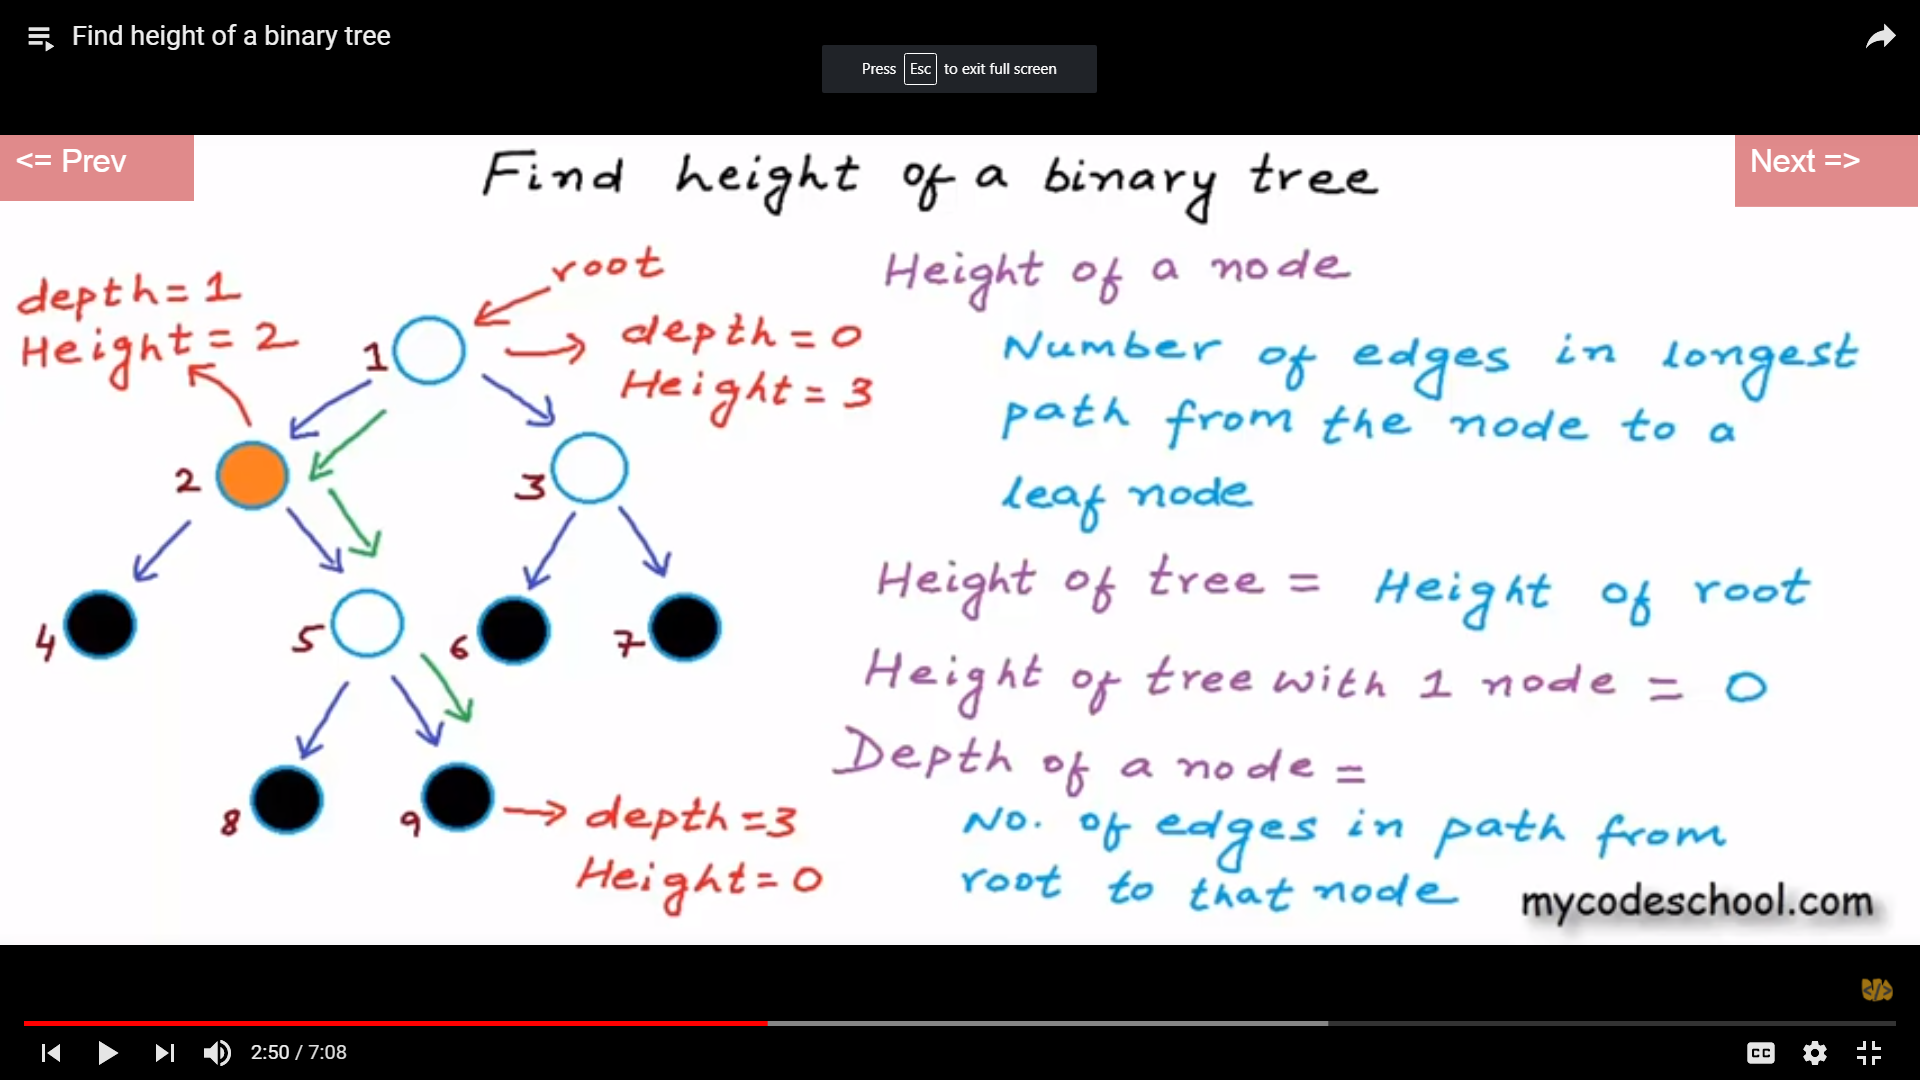 Find height of a binary tree
Press Esc to exit full screen
<= Prev
Next =>
Find height of a binary tree
root
depth = 1
Height = 2
1
depth = 0
Height = 3
2
3
4
5
6
7
8
9
depth = 3
Height = 0
Height of a node
Number of edges in longest
path from the node to a
leaf node
Height of tree = Height of root
Height of tree with 1 node = 0
Depth of a node =
No. of edges in path from
root to that node
mycodeschool.com
</>
2:50 / 7:08
CC